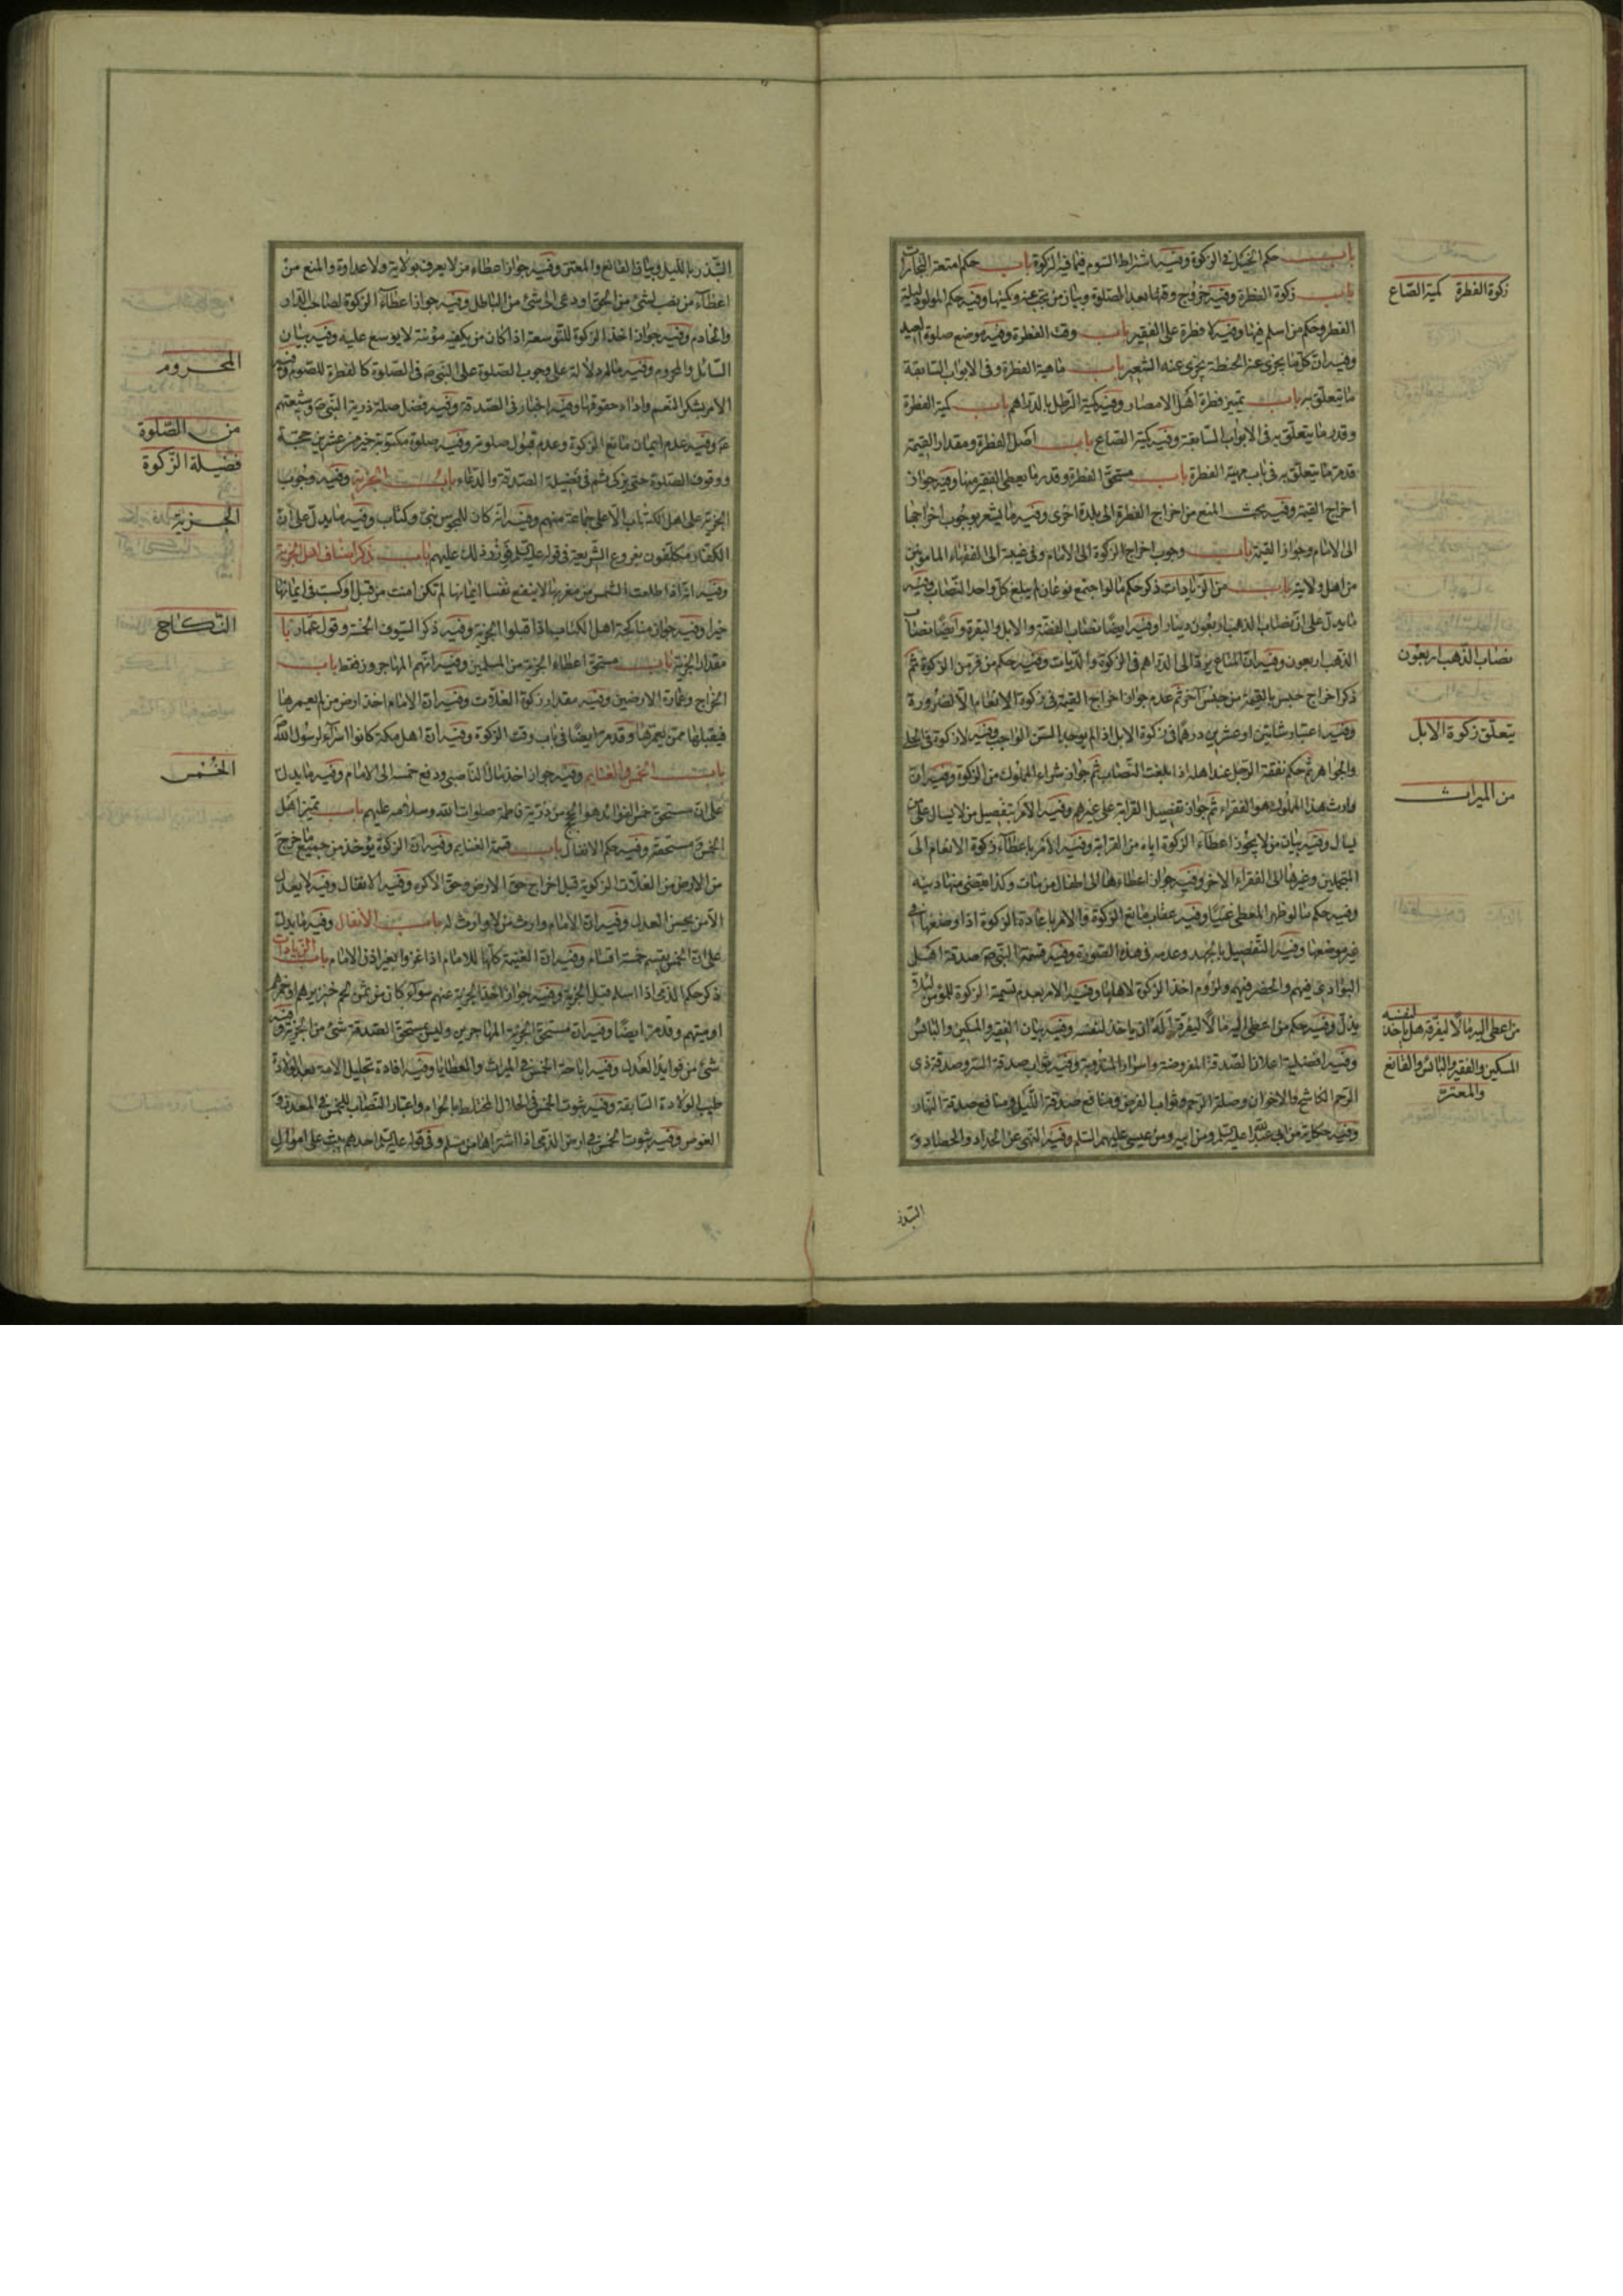 باب حكم الخيل في الزكوة وفيه اشتراط السوم فيما فيه الزكوة باب حكم امتعة التجارات
باب زكوة الفطرة وفيه خروج وقتها بعد الصلوة وبيان من تجب عنه وكميتها وفيه حكم المولود ليلة
الفطر وحكم من اسلم فيها وفيه لا فطرة على الفقير باب وقت الفطرة وفيه موضع صلوة العيد
وفيه ان كل ما يجزى عنه الحنطة يجزى عنه الشعير باب ماهية الفطرة وفى الابواب السابقة
ما يتعلق به باب تمييز فطرة اهل الامصار وفيه كمية الرطل بالدراهم باب كمية الفطرة
وقد مر ما يتعلق به فى الابواب السابقة وفيه كمية الصاع باب افضل الفطرة ومقدار القيمة
قد مر ما يتعلق به فى باب مهية الفطرة باب مستحق الفطرة وقدر ما يعطى الفقير منها وفيه جواز
اخراج القيمة وفيه بحث المنع من اخراج الفطرة الى بلدة اخرى وفيه ما يشعر بوجوب اخراجها
الى الامام وجواز القيمة باب وجوب اخراج الزكوة الى الامام وفى غيبة الى الفقهاء المامونين
من اهل ولايته باب من الزيادات ذكر حكم ما لو اجتمع نوعان لم يبلغ كل واحد النصاب وفيه
ما يدل على ان نصاب الذهب اربعون دينارا وفيه ايضا نصاب الفضة والابل والبقرة وايضا نصاب
الذهب اربعون وفيه ان المتاع يرد الى الدراهم فى الزكوة والديات وفيه حكم من فر من الزكوة ثم
ذكر اخراج جنس بالقيمة من جنس آخر ثم عدم جواز اخراج القيمة فى زكوة الانعام الا لضرورة
وفيه اعتبار شاتين او عشرين درهما فى زكوة الابل اذا لم يوجد السن الواجب وفيه لا زكوة فى الحلى
والجواهر ثم حكم نفقة الرجل عند اهله اذا بلغت النصاب ثم جواز شراء المملوك من الزكوة وفيه ان
وارث هذا المملوك هو الفقراء ثم جواز تفضيل القرابة على غيرهم وفيه الامر بتفضيل من لا يسال على من
يسال وفيه بيان من لا يجوز اعطاء الزكوة اياه من القرابة وفيه الامر باعطاء زكوة الانعام الى
المتجملين وغيرها الى الفقراء الاخر وفيه جواز اعطاءها الى اطفال من مات وكذا يقضى منها دينه
وفيه حكم ما لو ظهر المعطى غنيا وفيه عقاب مانع الزكوة والامر باعادة الزكوة اذا وضعها فى
غير موضعها وفيه التفصيل بالجهد وعدمه فى هذه الصورة وفيه قسمة النبى ص صدقة اهل
البوادى فيهم والحضر فيهم ولزوم اخذ الزكوة لاهلها وفيه الامر بعدم تسمية الزكوة للمؤمن لئلا
يذل وفيه حكم من اعطى اليه مالا ليفرقه اله ان ياخذ لنفسه وفيه بيان الفقير والمسكين والبائس
وفيه افضلية اعلان الصدقة المفروضة واسرار المندوبة وفيه ثواب صدقة السر وصدقة ذى
الرحم الكاشح والاخوان وصلة الرحم وثواب القرض ومنافع صدقة الليل ومنافع صدقة النهار
وفيه حكاية من ابى عبد الله عليه السلم ومن ابيه ومن عيسى عليهم السلم وفيه النهى عن الجداد والحصاد و
التبذر
زكوة الفطرة كمية الصاع
نصاب الذهب اربعون
يتعلق زكوة الابل
من الميراث
من اعطى اليه مالا ليفرقه هل ياخذ لنفسه
المسكين والفقير والبائس والقانع
والمعتر
التبذر بالليل وبيان القانع والمعتر وفيه جواز اعطاء من لا يعرف بولاية ولا عداوة والمنع من
اعطاء من نصب لشئ من الحق او دعى الى شئ من الباطل وفيه جواز اعطاء الزكوة لصاحب الدار
والخادم وفيه جواز اخذ الزكوة للتوسعة اذا كان من يكفيه مؤنته لا يوسع عليه وفيه بيان
السائل والمحروم وفيه ماله دلالة على وجوب الصلوة على النبى ص فى الصلوة كالفطرة للصوم وفيه
الامر بشكر المنعم واداء حقوقها وفيه اخبار فى الصدقة وفيه فضل صلة ذرية النبى ص وشيعتهم
ع وفيه عدم ايمان مانع الزكوة وعدم قبول صلوته وفيه صلوة مكتوبة خير من عشرين حجة
ووقوف الصلوة حتى يزكى ثم فى فضيلة الصدقة والدعاء باب الجزية وفيه وجوب
الجزية على اهل الكتاب الا على جماعة منهم وفيه انه كان للمجوس نبى وكتاب وفيه ما يدل على ان
الكفار مكلفون بفروع الشريعة فى قوله عليه السلم فوزر ذلك عليهم باب ذكر اصناف اهل الجزية
وفيه انه اذا طلعت الشمس من مغربها لا ينفع نفسا ايمانها لم تكن امنت من قبل او كسبت فى ايمانها
خيرا وفيه جواز مناكحة اهل الكتاب اذا قبلوا الجزية وفيه ذكر السيوف الخمسة وقول عمار باب
مقدار الجزية باب مستحق اعطاء الجزية من المسلمين وفيه انهم المهاجرون فقط باب
الخراج وعمارة الارضين وفيه مقدار زكوة الغلات وفيه ان الامام اخذ ارض من لم يعمرها
فيقبلها ممن يعمرها وقد مر ايضا فى باب وقت الزكوة وفيه ان اهل مكة كانوا اسراء لرسول الله ص
باب الخمس والغنايم وفيه جواز اخذ مال الناصبى ودفع خمسه الى الامام وفيه ما يدل
على ان مستحق خمس الفوائد هو الحجج من ذرية فاطمة صلوات الله وسلامه عليهم باب تمييز اهل
الخمس ومستحقه وفيه حكم الانفال باب قسمة الغنايم وفيه ان الزكوة يؤخذ من جميع ما خرج
من الارض من الغلات الزكوية قبل اخراج حق الارض وحق الاكره وفيه الانفال وفيه لا يعدل
الا من يحسن العدل وفيه ان الامام وارث من لا وارث له باب الانفال وفيه ما يدل
على ان الخمس يقسم خمسة اقسام وفيه ان الغنيمة كلها للامام اذا غزوا بغير اذن الامام باب الزيادات
ذكر حكم الذمى اذا اسلم قبل الجزية وفيه جواز اخذ الجزية عنهم سواء كان من ثمن لحم خنزيرهم او خمرهم
او ميتهم وقد مر ايضا وفيه ان مستحق الجزية المهاجرين وليس مستحق الصدقة شئ من الجزية وفيه
شئ من فوايد العدل وفيه اباحة الخمس فى الميراث والعطايا وفيه افادة تحليل الامة بعد الولادة
طيب الولادة السابقة وفيه ثبوت الخمس فى الحلال المختلط بالحرام واعتبار النصاب للخمس فى المعدن و
الغوص وفيه ثبوت الخمس فى ارض الذمى اذا اشتراها من مسلم وفى قوله عليه السلم احدهم يثب على اموال
المحروم
من الصلوة
فضيلة الزكوة
الجزية
النكاح
الخمس